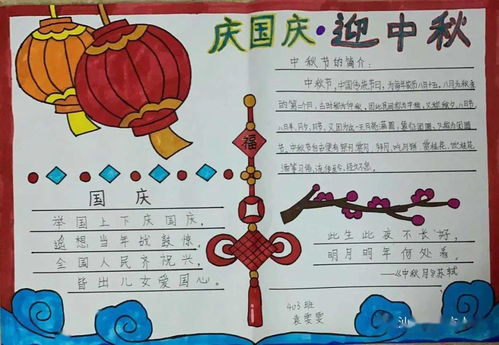 庆国庆·迎中秋
中秋节的简介:
中秋节,中国传统节日,为每年农历八月十五,八月为秋季
的第二个月,古时称为仲秋,因此民间称为中秋,又称秋夕、八月节
八月半、月夕、月节,又因为这一天月亮满圆,象征团圆,又称为团圆
节。中秋节自古便有祭月、赏月、拜月、吃月饼、赏桂花、饮桂花
酒等习俗,流传至今,经久不息。
福
国庆
举国上下庆国庆,
遥想当年战鼓惊,
全国人民齐祝兴,
皆出儿女爱国心。
此生此夜不长好,
明月明年何处看。
——《中秋月》苏轼
403班
袁雯雯